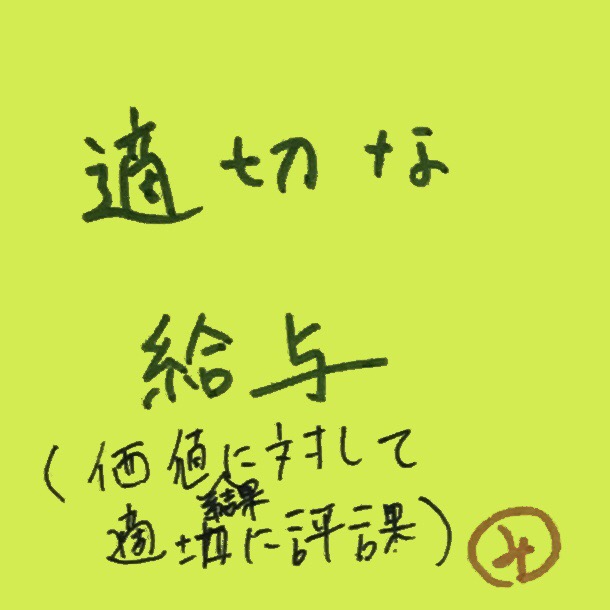 適切な
給与
(価値に対して
結果
適切に評課)